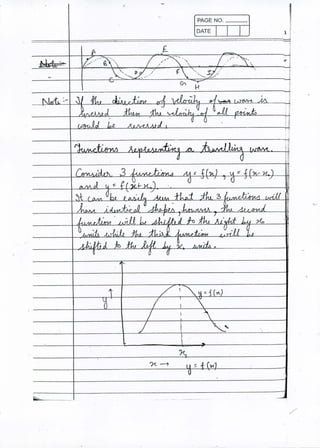 PAGE NO.
DATE
1
A E
B
D F I
C G H
Note :- If the direction of velocity of wave is
reversed then the velocity of all points
would be reversed.
Functions representing a travelling wave.
Consider 3 functions y = f(x), y = f(x-x₀)
and y = f(x+x₀).
It can be easily seen that the 3 functions will
have identical shapes, however, the second
function will be shifted to the right by x₀
units while the third function will be
shifted to the left by x₀ units.
y ↑ y = f(x)
x₁
x → y = f(x)